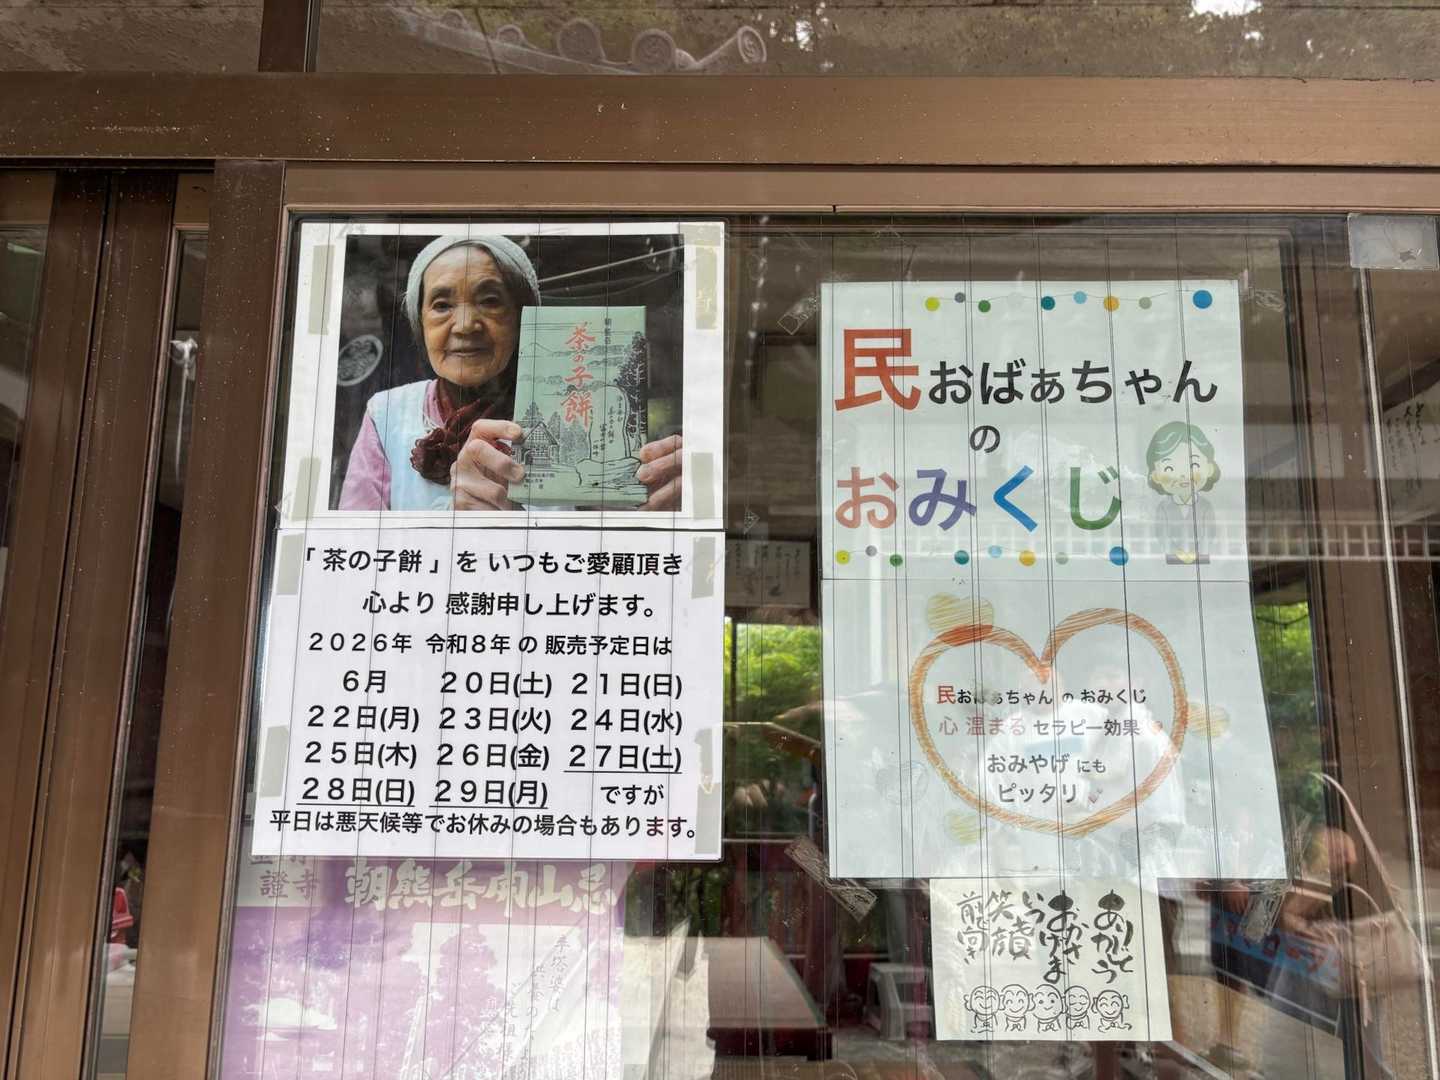 茶の子餅
「 茶の子餅 」を いつもご愛顧頂き
心より 感謝申し上げます。
２０２６年 令和８年 の 販売予定日は
６月 ２０日(土) ２１日(日)
２２日(月) ２３日(火) ２４日(水)
２５日(木) ２６日(金) ２７日(土)
２８日(日) ２９日(月) ですが
平日は悪天候等でお休みの場合もあります。
朝熊岳
民おばぁちゃん
の
おみくじ
民おばぁちゃん の おみくじ
心 温まる セラピー効果
おみやげ にも
ピッタリ
ありがとう
おかげさま
いつも
笑顔
前向き